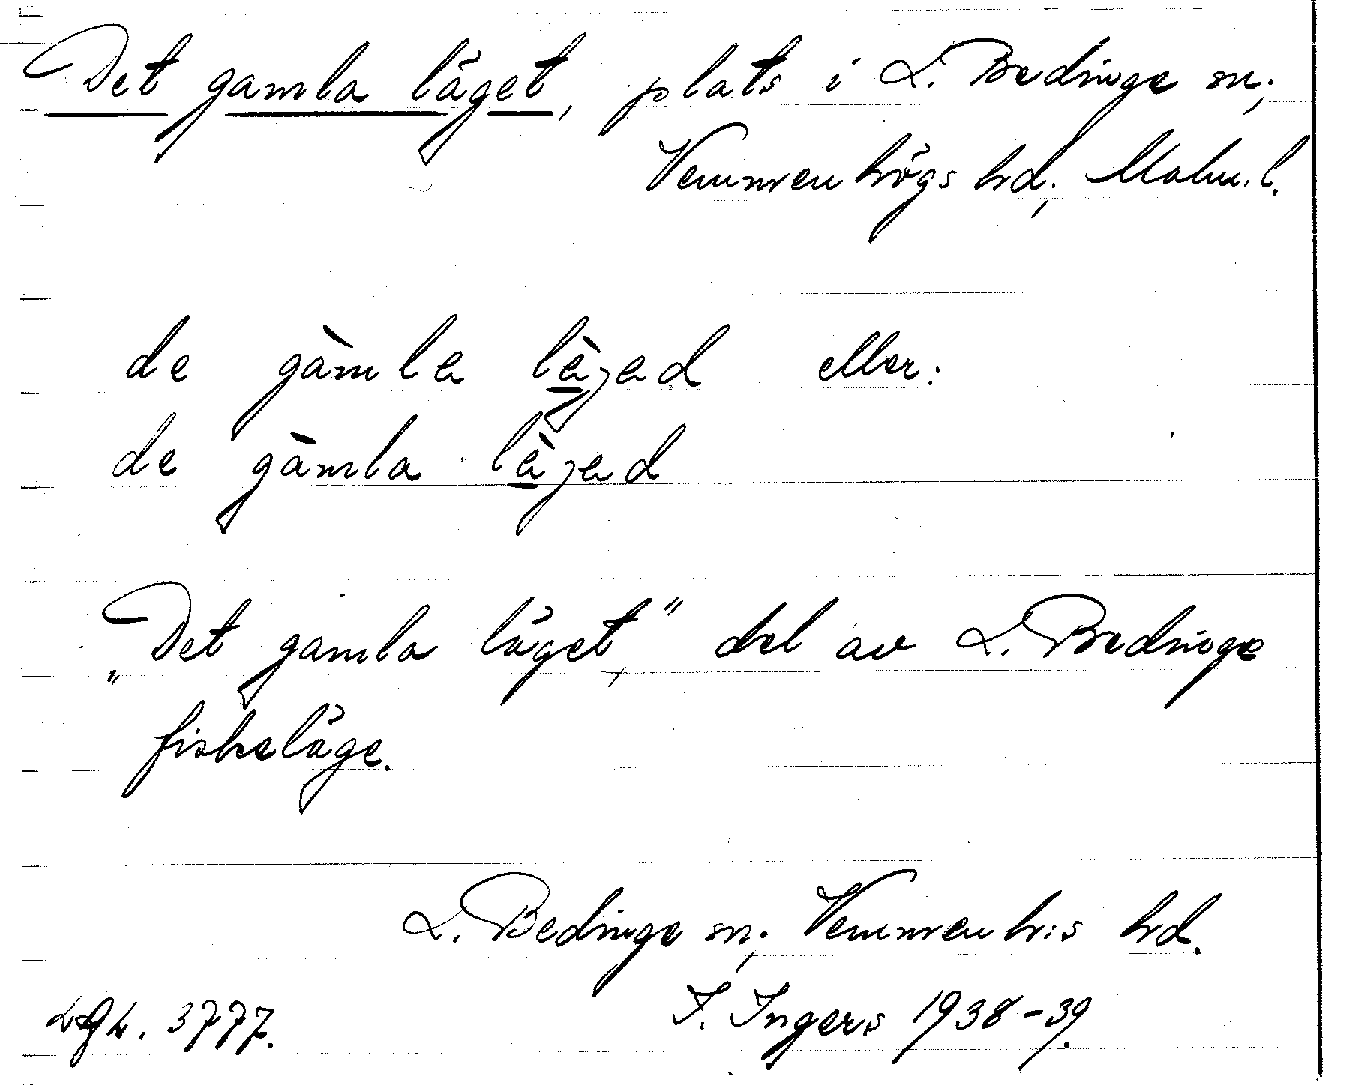 Det gamla läget, plats i L. Bedinge sn;
Vemmenhögs hrd; Malm. l.
de gàmla lèjad eller:
de gàmla lèjad
„Det gamla läget,” del av L. Bedinge
fiskeläge.
L. Bedinge sn; Vemmenh:s hrd.
I. Ingers 1938-39.
3777.